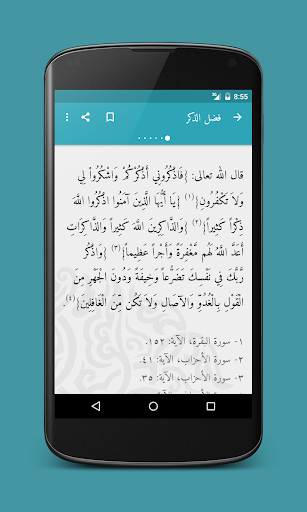 8:55
فضل الذكر
قال الله تعالى: {فَاذْكُرُونِي أَذْكُرْكُمْ وَاشْكُرُواْ لِي
وَلاَ تَكْفُرُونِ}(١) {يَا أَيُّهَا الَّذِينَ آمَنُوا اذْكُرُوا اللَّهَ
ذِكْراً كَثِيراً}(٢) {وَالذَّاكِرِينَ اللَّهَ كَثِيراً وَالذَّاكِرَاتِ
أَعَدَّ اللَّهُ لَهُم مَّغْفِرَةً وَأَجْراً عَظِيماً}(٣) {وَاذْكُر
رَّبَّكَ فِي نَفْسِكَ تَضَرُّعاً وَخِيفَةً وَدُونَ الْجَهْرِ مِنَ
الْقَوْلِ بِالْغُدُوِّ وَالآصَالِ وَلاَ تَكُن مِّنَ الْغَافِلِينَ}(٤).
١- سورة البقرة، الآية: ١٥٢.
٢- سورة الأحزاب، الآية: ٤١.
٣- سورة الأحزاب، الآية: ٣٥.